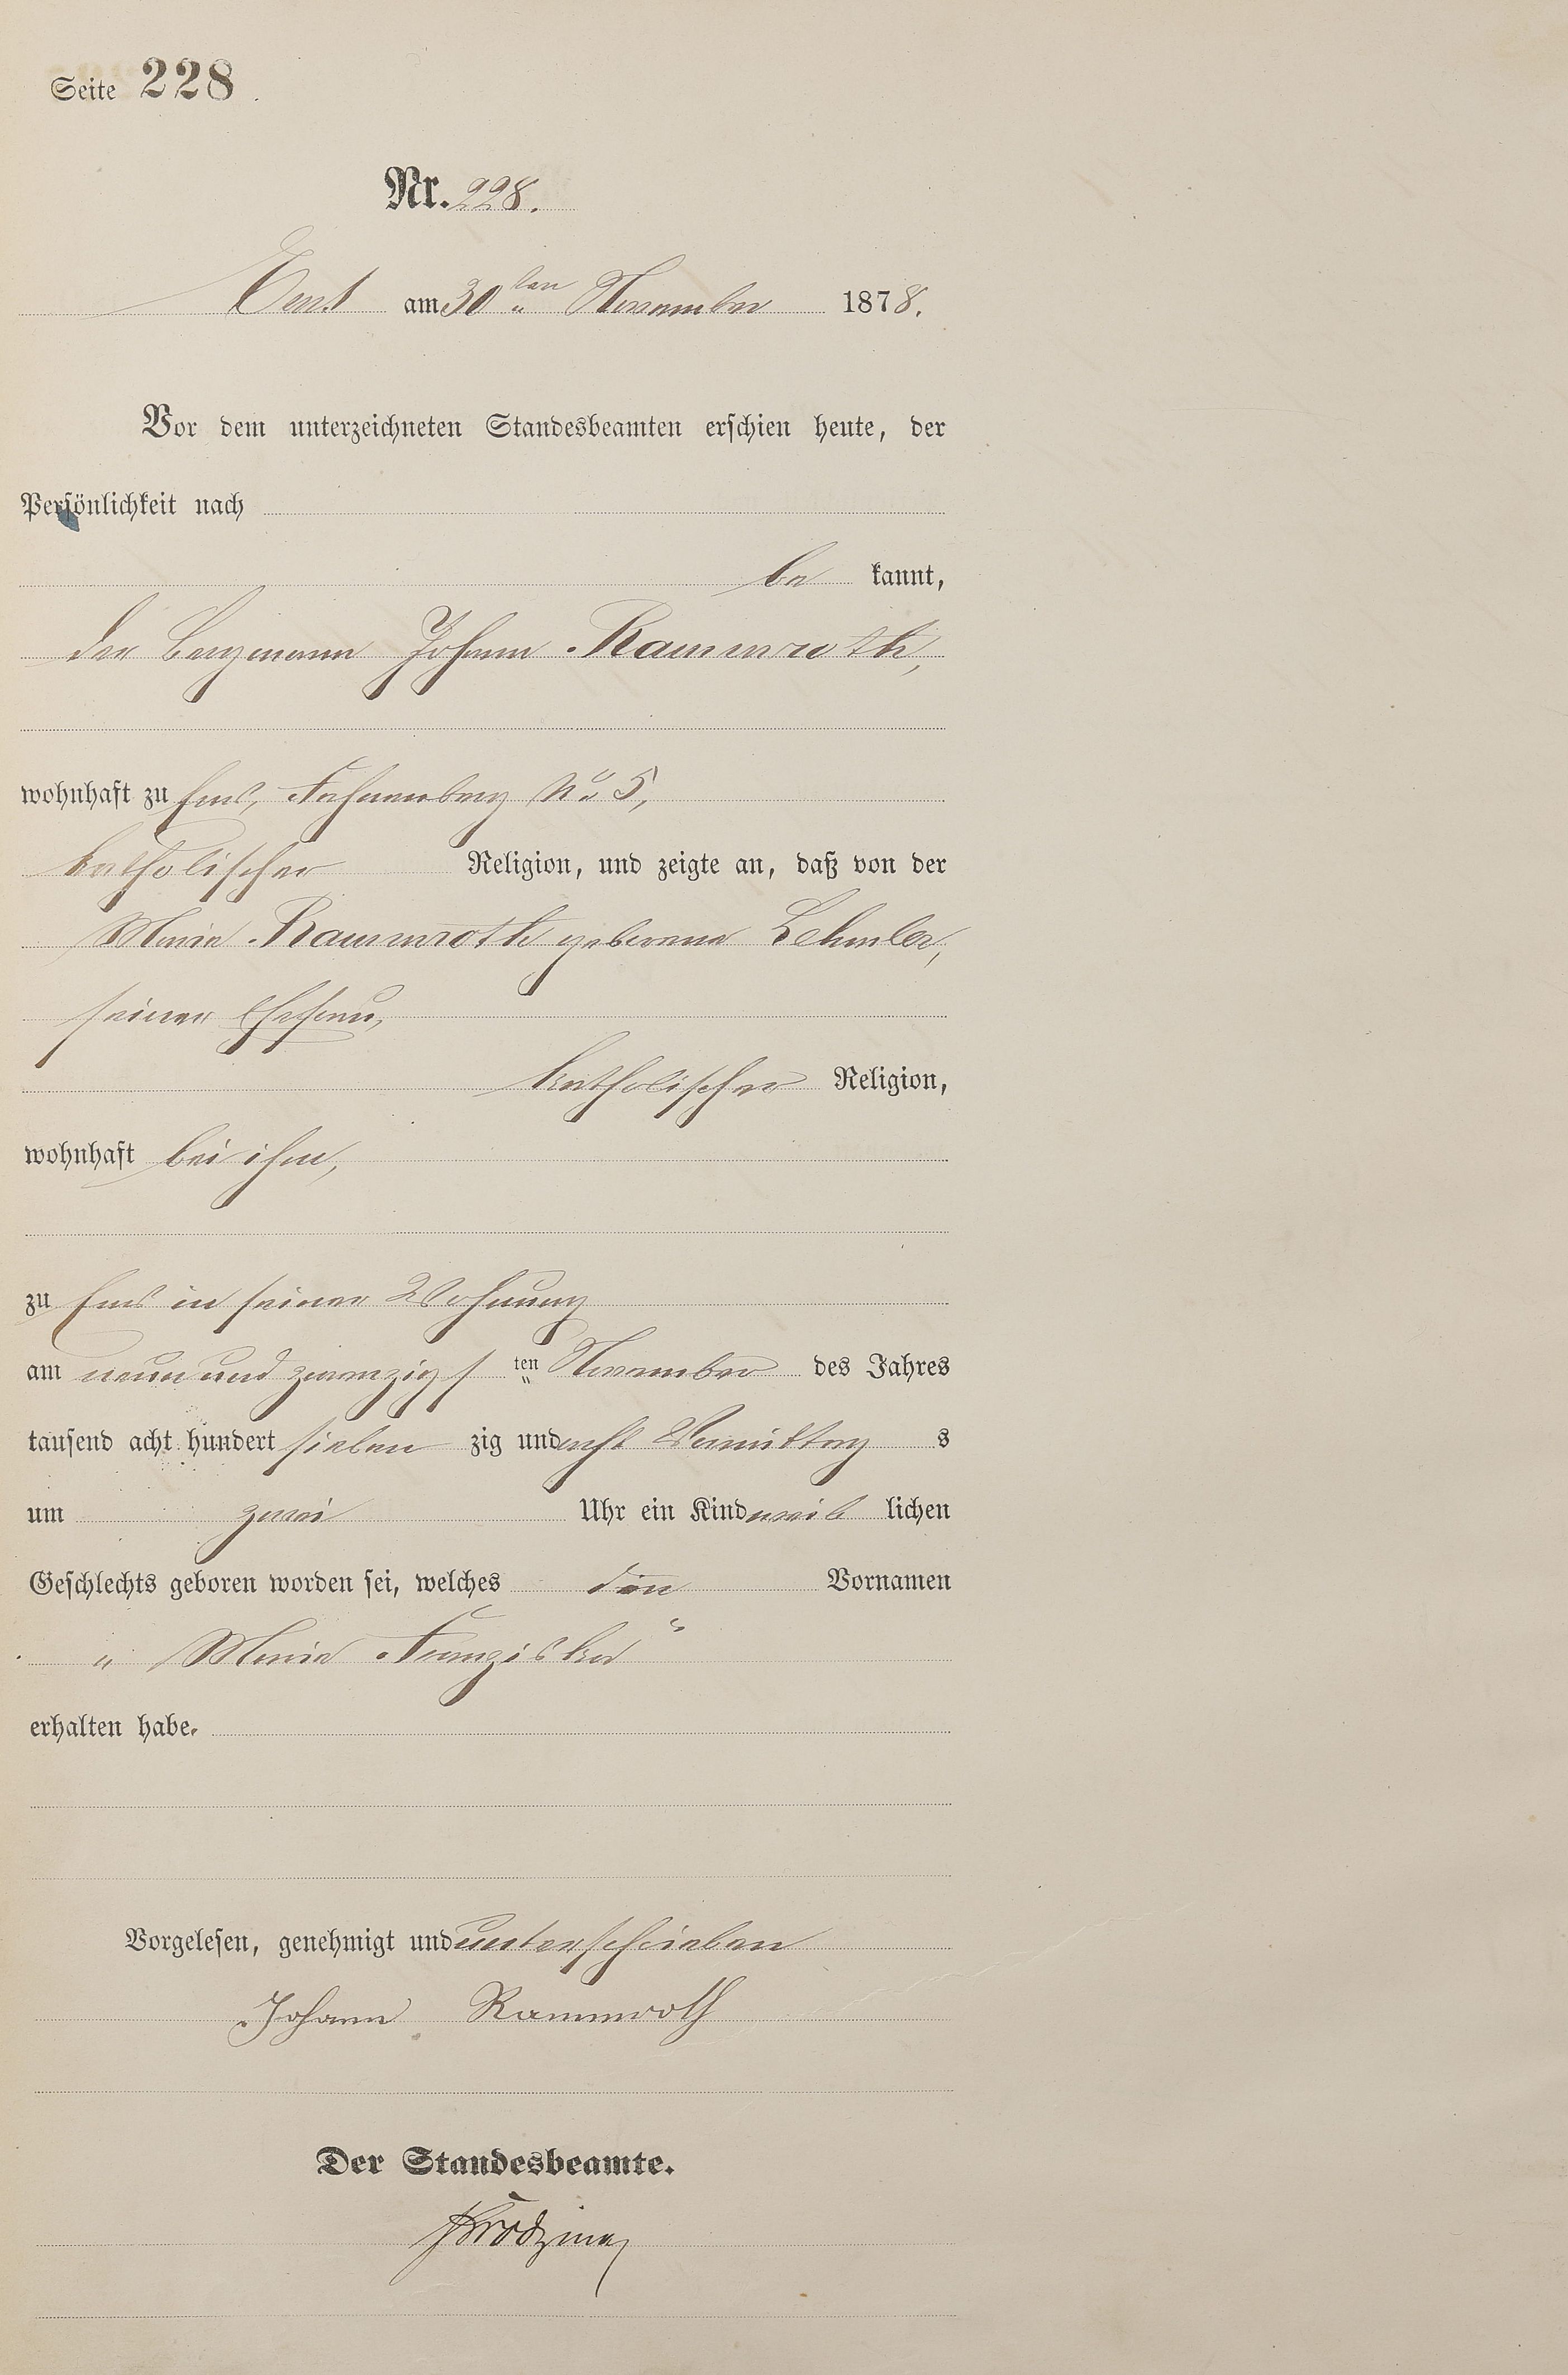 Seite 228
Nr. 228.
Ems am 30ten November 1878.
Vor dem unterzeichneten Standesbeamten erschien heute, der
Persönlichkeit nach
be kannt,
der Bergmann Johann Rammroth,
wohnhaft zu Ems, No 5,
katholischer Religion, und zeigte an, daß von der
Maria Rammroth geborene Lehmler,
seiner Ehefrau,
katholischer Religion,
wohnhaft bei ihm,
zu Ems in seiner Wohnung
am neun und zwanzigs ten November des Jahres
tausend acht hundert sieben zig und acht Vormittag s
um zwei Uhr ein Kind weib lichen
Geschlechts geboren worden sei, welches die Vornamen
„Maria Franziska“
erhalten habe.
Vorgelesen, genehmigt und unterschrieben
Johann Rammroth
Der Standesbeamte.